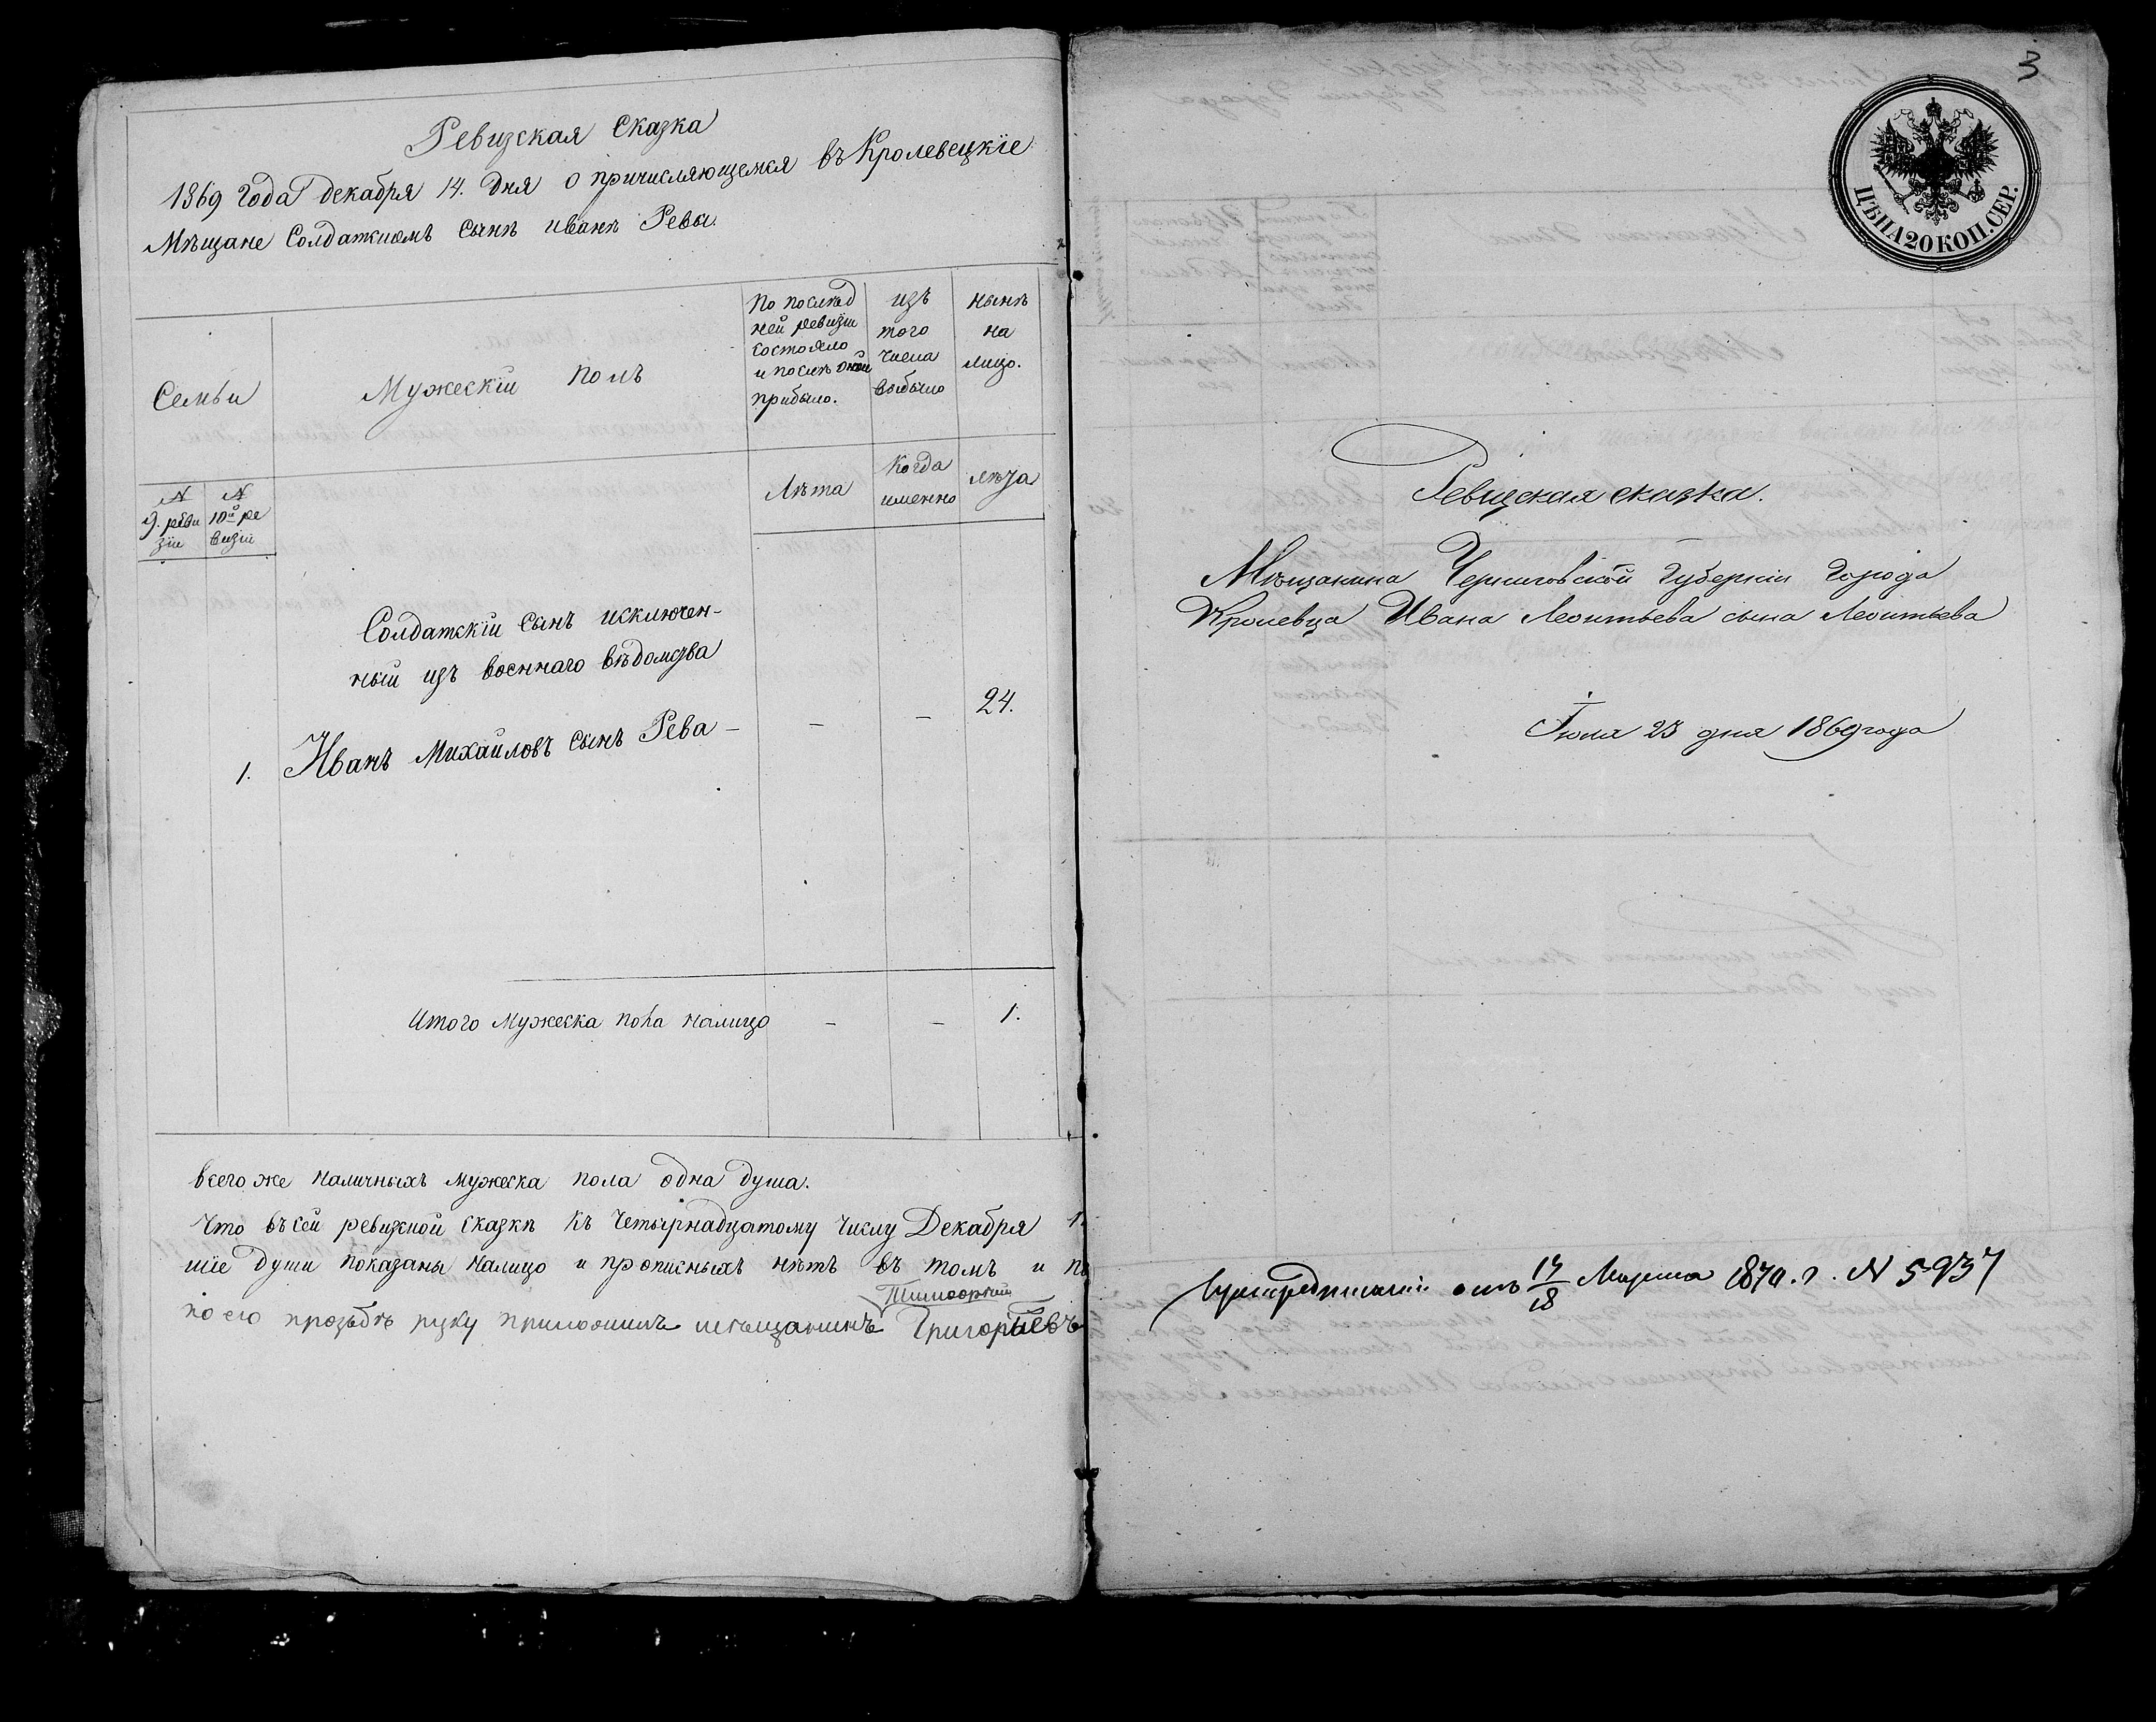 Ревизская Сказка
1869 года декабря 14. дня о причисляющемся въ Кролевецкіе
Мѣщане Солдатскомъ Сынѣ Иванѣ Ревы.
Семьи
Мужескій полъ
По послѣд
ней ревизіи
состояло
и послѣ оной
прибыло.
изъ
того
числа
выбыло
нынѣ
на
лицо.
№
9. реви
зіи
№
10й ре
визіи
Лѣта
Когда
именно
Лѣта
Солдатскій Сынъ исключен-
ный изъ военнаго вѣдомства
1. Иванъ Михайловъ сынъ Рева – – – 24.
Итого Мужеска пола налицо – – 1.
всего же наличныхъ мужеска пола одна душа.
Что въ сей ревизкой сказкѣ къ четырнадцатому числу Декабря 1
шіе души показаны налицо и прописныхъ нѣтъ въ томъ и по
Тимоѳрей
по его прозьбѣ руку приложилъ мѣщанинъ Григорьевъ
3
ЦѢНА 20 КОП. СЕР.
Ревизская сказка.
Мѣщанина Черниговской Губерніи Города
Кролевца Ивана Леонтьева сына Леонтьева
Іюля 23 дня 1869 года
отъ 17/18 Марта 1870. г. № 5937